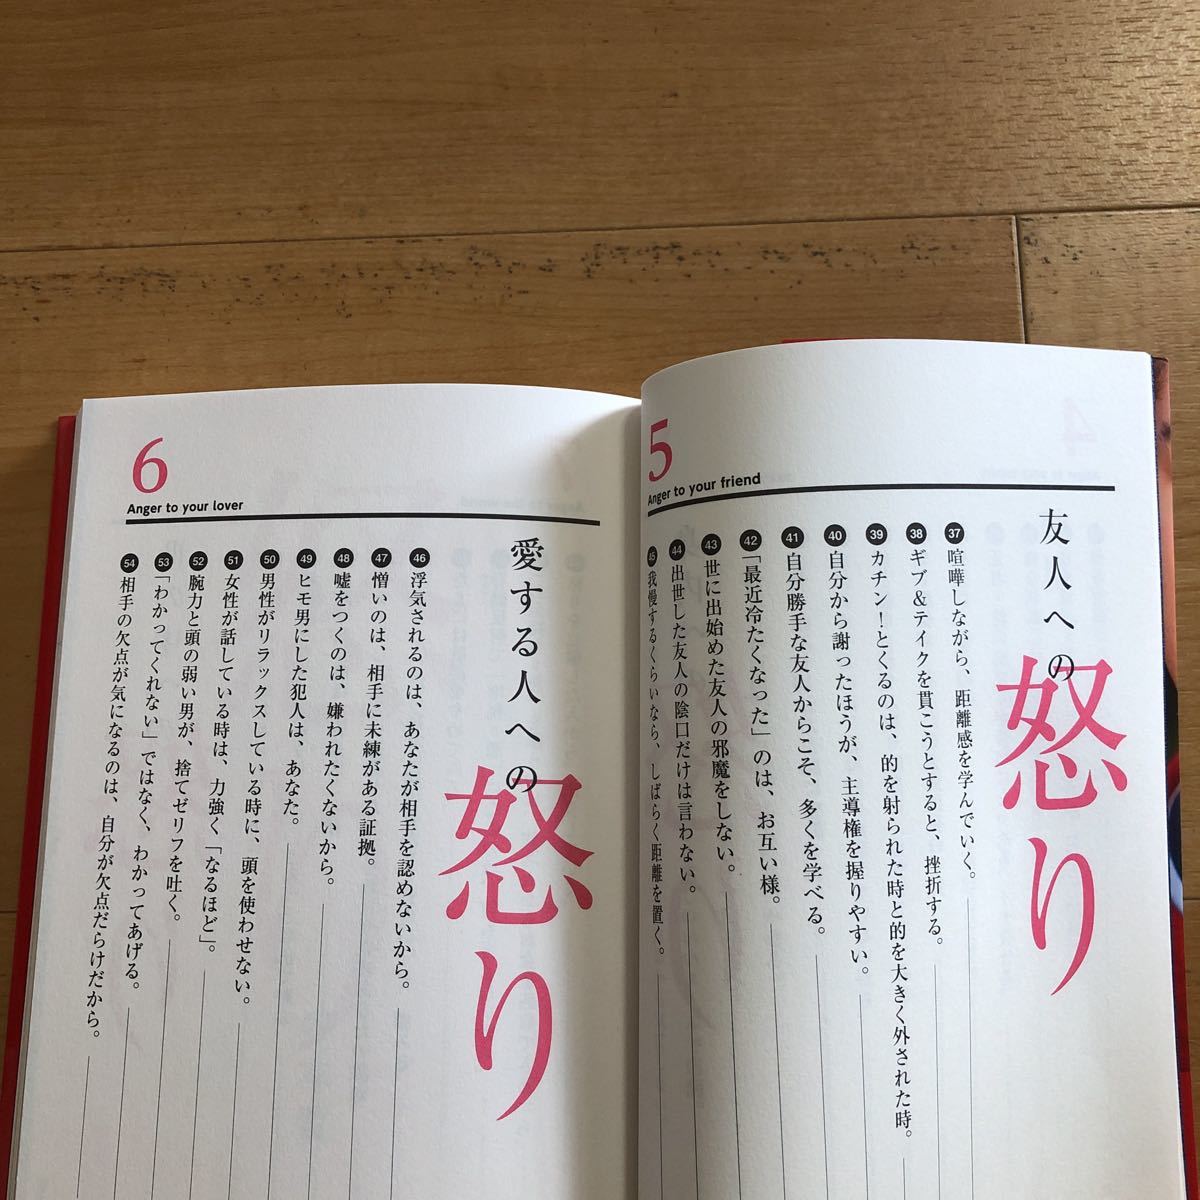 5
Anger to your friend
友人への
怒り
37 喧嘩しながら、距離感を学んでいく。
38 ギブ&テイクを貫こうとすると、挫折する。
39 カチン!とくるのは、的を射られた時と的を大きく外された時。
40 自分から謝ったほうが、主導権を握りやすい。
41 自分勝手な友人からこそ、多くを学べる。
42 「最近冷たくなった」のは、お互い様。
43 世に出始めた友人の邪魔をしない。
44 出世した友人の陰口だけは言わない。
45 我慢するくらいなら、しばらく距離を置く。
6
Anger to your lover
愛する人への
怒り
46 浮気されるのは、あなたが相手を認めないから。
47 憎いのは、相手に未練がある証拠。
48 嘘をつくのは、嫌われたくないから。
49 ヒモ男にした犯人は、あなた。
50 男性がリラックスしている時に、頭を使わせない。
51 女性が話している時は、力強く「なるほど」。
52 腕力と頭の弱い男が、捨てゼリフを吐く。
53 「わかってくれない」ではなく、わかってあげる。
54 相手の欠点が気になるのは、自分が欠点だらけだから。